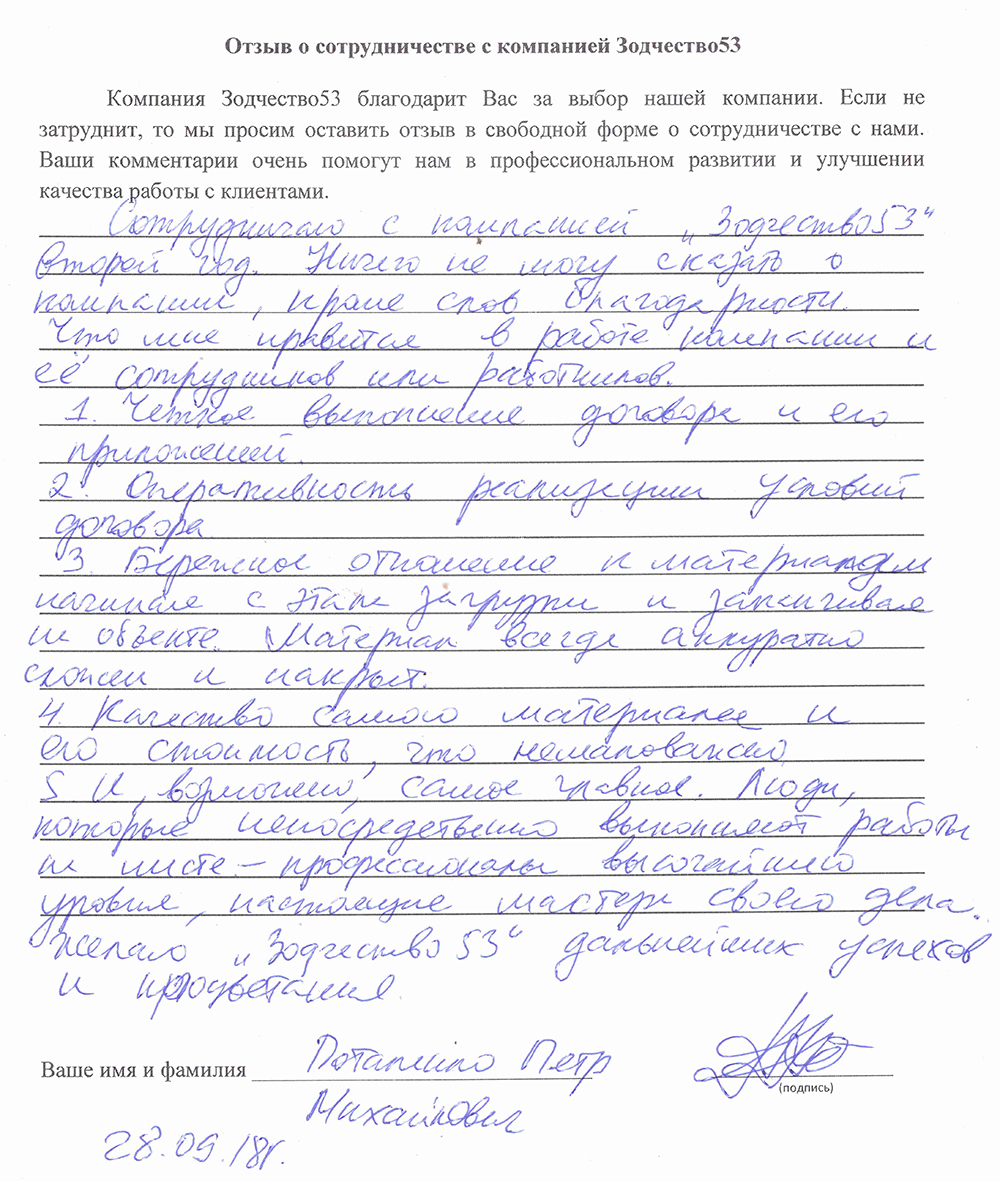 Отзыв о сотрудничестве с компанией Зодчество53
Компания Зодчество53 благодарит Вас за выбор нашей компании. Если не
затруднит, то мы просим оставить отзыв в свободной форме о сотрудничестве с нами.
Ваши комментарии очень помогут нам в профессиональном развитии и улучшении
качества работы с клиентами.
Сотрудничаю с компанией „Зодчество53“
второй год. Ничего не могу сказать о
компании, кроме слов благодарности.
Что мне нравится в работе компании и
её сотрудников или работников.
1. Четкое выполнение договора и его
приложений.
2. Оперативность реализации условий
договора
3. Бережное отношение к материалам
начиная с этапа загрузки и заканчивая
на объекте. Материал всегда аккуратно
сложен и накрыт.
4. Качество самого материала и
его стоимость, что немаловажно
5 И, возможно, самое главное. Люди,
которые непосредственно выполняют работы
на месте – профессионалы высочайшего
уровня, настоящие мастера своего дела.
Желаю „Зодчество 53“ дальнейших успехов
и процветания.
Ваше имя и фамилия Потапенко Петр
(подпись)
Михайлович
28.09.18г.